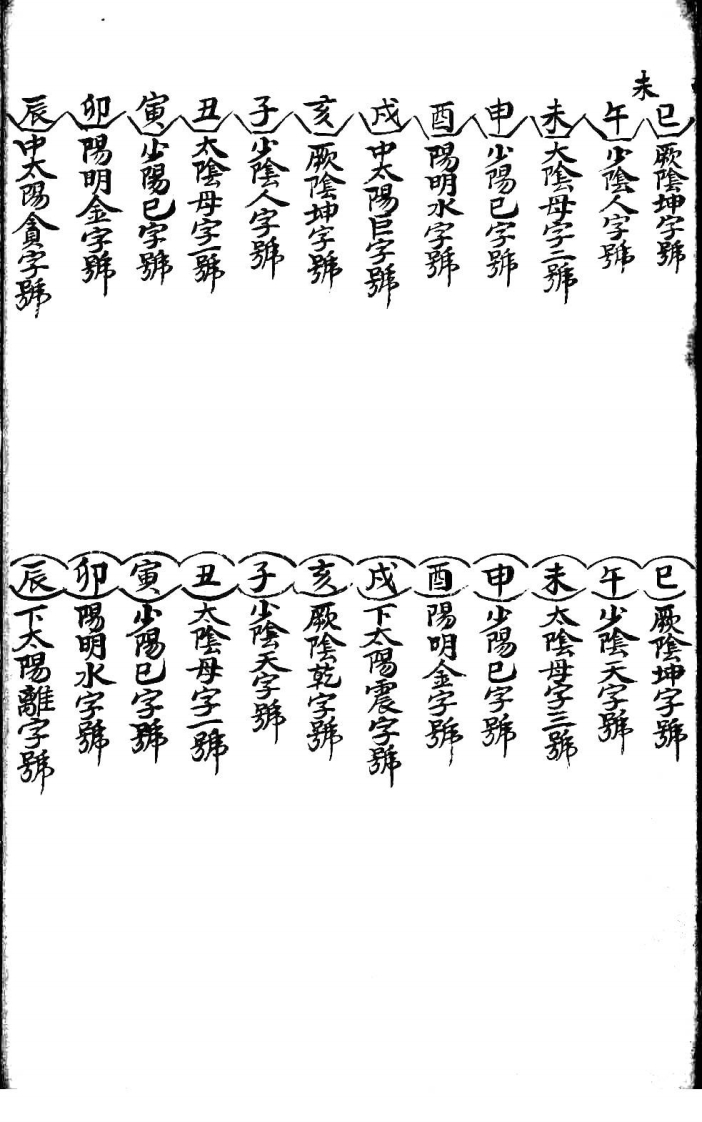 未
巳 厥陰坤字號
午 少陰人字號
未 太陰母字二號
申 少陽巳字號
酉 陽明水字號
戌 中太陽巨字號
亥 厥陰坤字號
子 少陰人字號
丑 太陰母字一號
寅 少陽巳字號
卯 陽明金字號
辰 中太陽貪字號
巳 厥陰坤字號
午 少陰天字號
未 太陰母字三號
申 少陽巳字號
酉 陽明金字號
戌 下太陽震字號
亥 厥陰乾字號
子 少陰天字號
丑 太陰母字二號
寅 少陽巳字號
卯 陽明水字號
辰 下太陽離字號